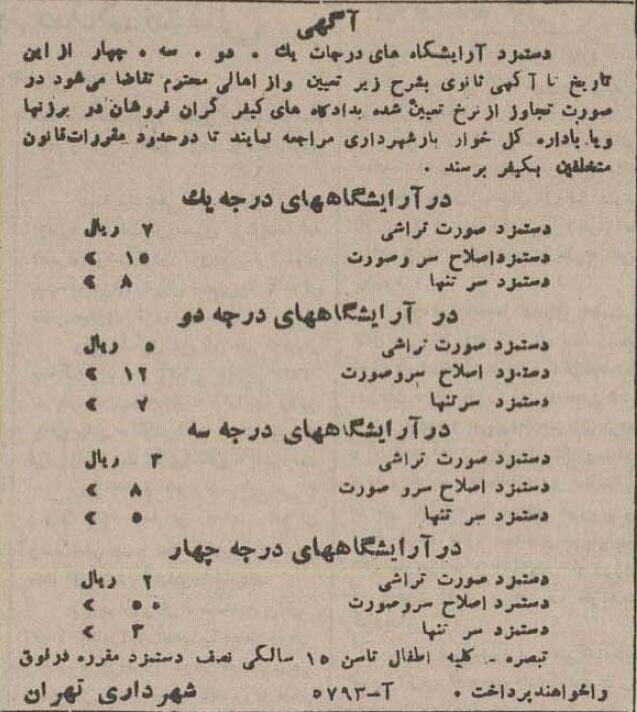 آگهی
دستمزد آرایشگاه های درجات یك . دو . سه . چهار از این
تاریخ تا آگهی ثانوی بشرح زیر تعیین واز اهالی محترم تقاضا می‌شود در
صورت تجاوز از نرخ تعیین شده بدادگاه های کیفر گران فروشان در برزنها
ویا باداره کل خوار بارشهرداری مراجعه نمایند تا درحدود مقررات‌قانون
متخلفین بکیفر برسند .
درآرایشگاههای درجه یك
دستمزد صورت تراشی ۷ ریال
دستمزداصلاح سر وصورت ۱۵ »
دستمزد سر تنها ۸ »
در آرایشگاههای درجه دو
دستمزد صورت تراشی ۵ ریال
دستمزد اصلاح سروصورت ۱۲ »
دستمزد سرتنها ۷ »
درآرایشگاههای درجه سه
دستمزد صورت تراشی ۳ ریال
دستمزد اصلاح سرو صورت ۸ »
دستمزد سر تنها ۵ »
درآرایشگاههای درجه چهار
دستمزد صورت تراشی ۲ ریال
دستمزد اصلاح سروصورت ۵۰ »
دستمزد سر تنها ۳ »
تبصره - کلیه اطفال تاسن ۱۵ سالگی نصف دستمزد مقرره درفوق
راخواهندپرداخت . آ-۵۷۹۳ شهرداری تهران